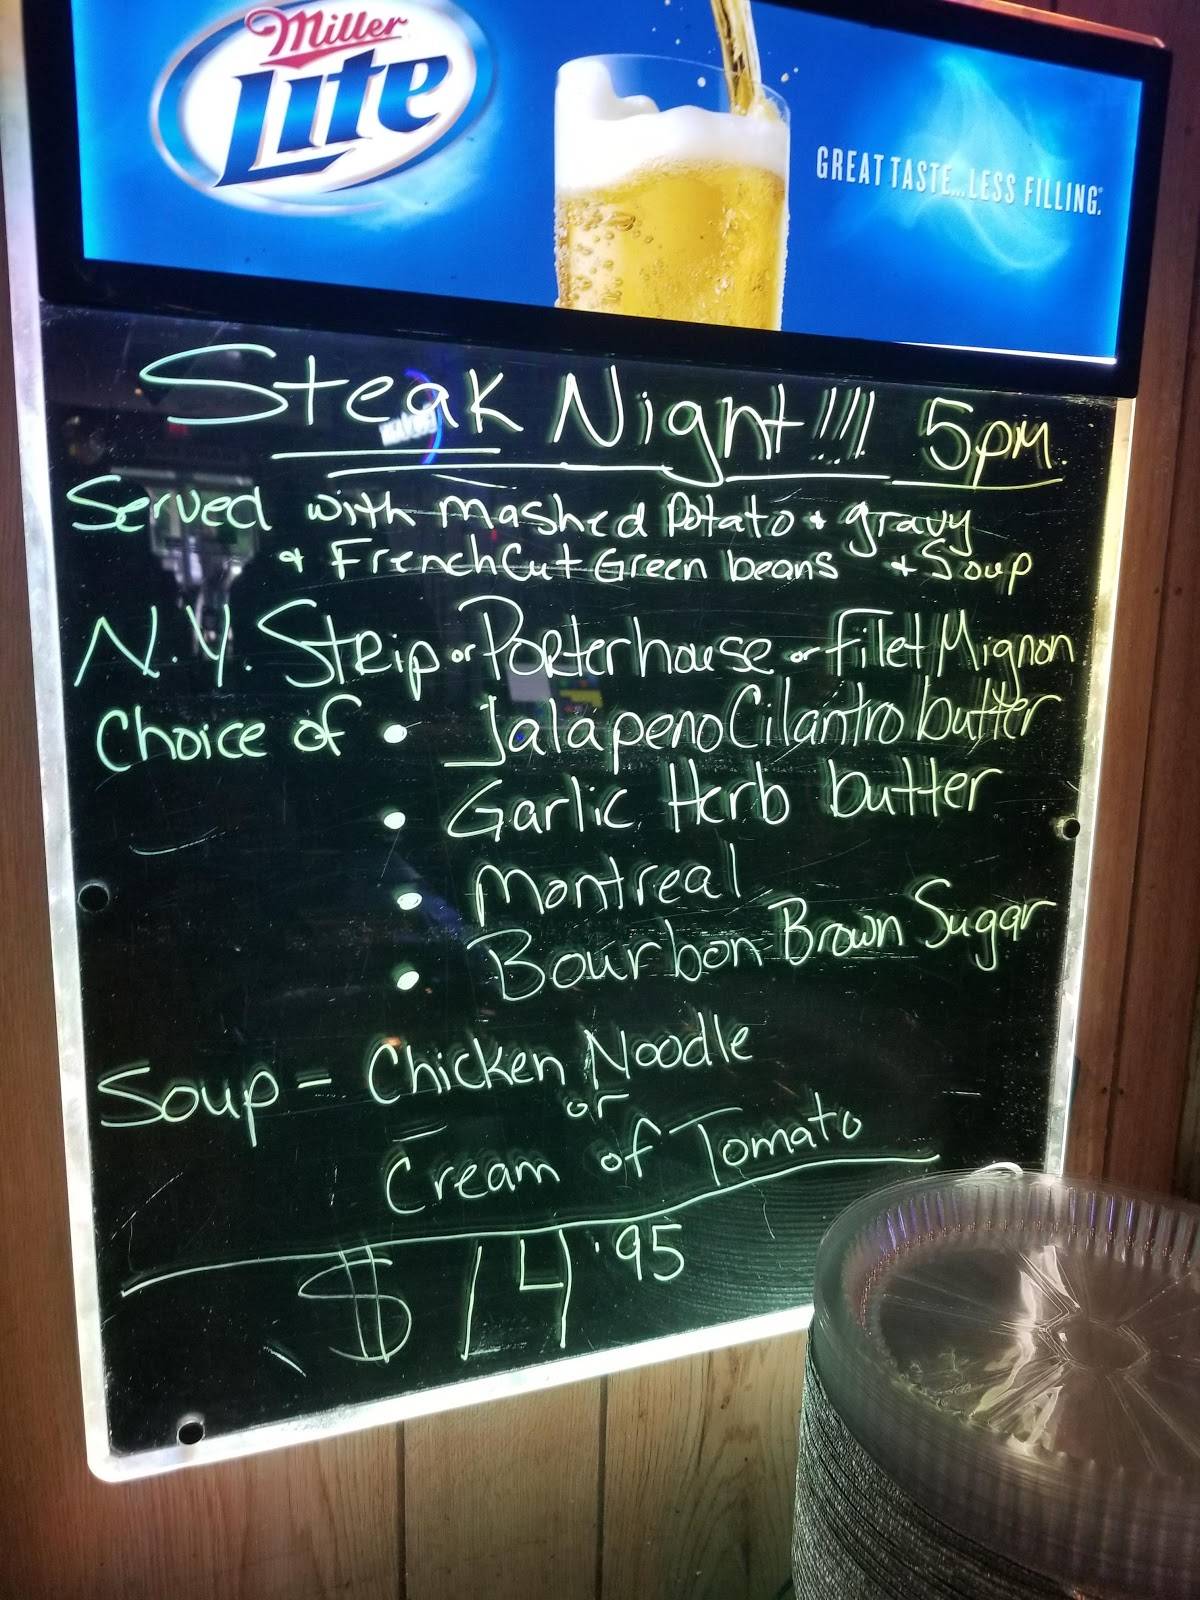 Miller
Lite
GREAT TASTE...LESS FILLING.
Steak Night!!!! 5pm.
Served with Mashed Potato + gravy
+ French Cut Green beans + Soup
N.Y. Strip or Porterhouse or Filet Mignon
Choice of • Jalapeno Cilantro butter
• Garlic Herb butter
• Montreal
• Bourbon Brown Sugar
Soup - Chicken Noodle
or
Cream of Tomato
$14.95